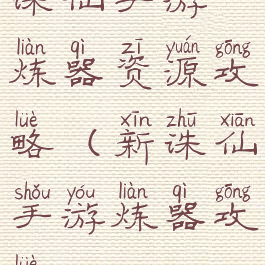 诛仙手游
liàn qì zī yuán gōng
炼器资源攻
lüè xīn zhū xiān
略（新诛仙
shǒu yóu liàn qì gōng
手游炼器攻
lüè